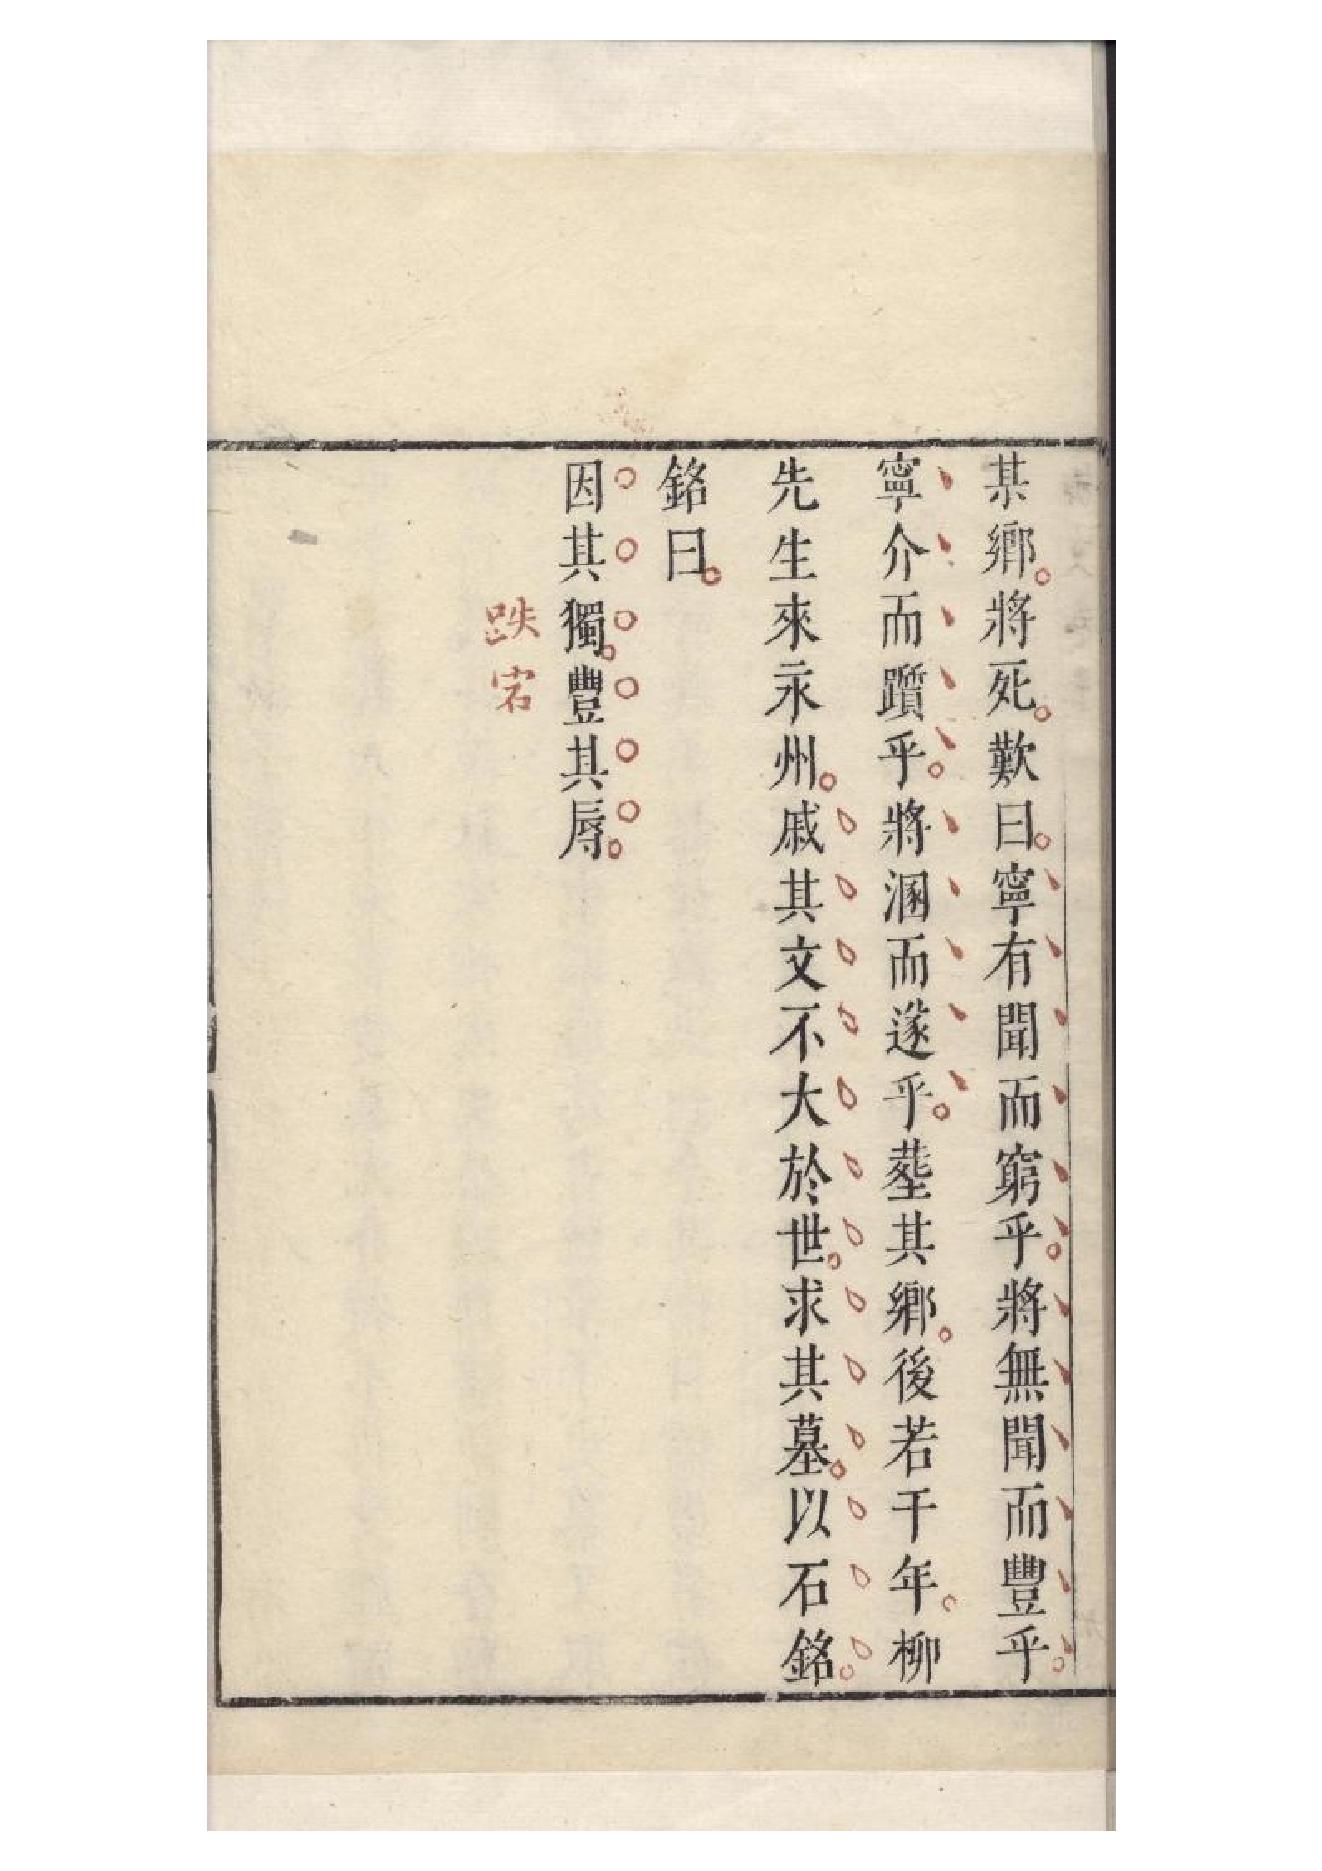 某鄉。將死。歎曰。寧有聞而窮乎。將無聞而豐乎。
寧介而躓乎。將溷而遂乎。塟其鄉。後若干年。柳
先生來永州。戚其文不大於世。求其墓。以石銘。
銘曰。
因其獨。豐其辱。
跌宕